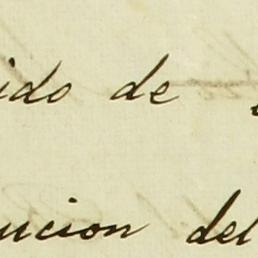 ido de
ucion del